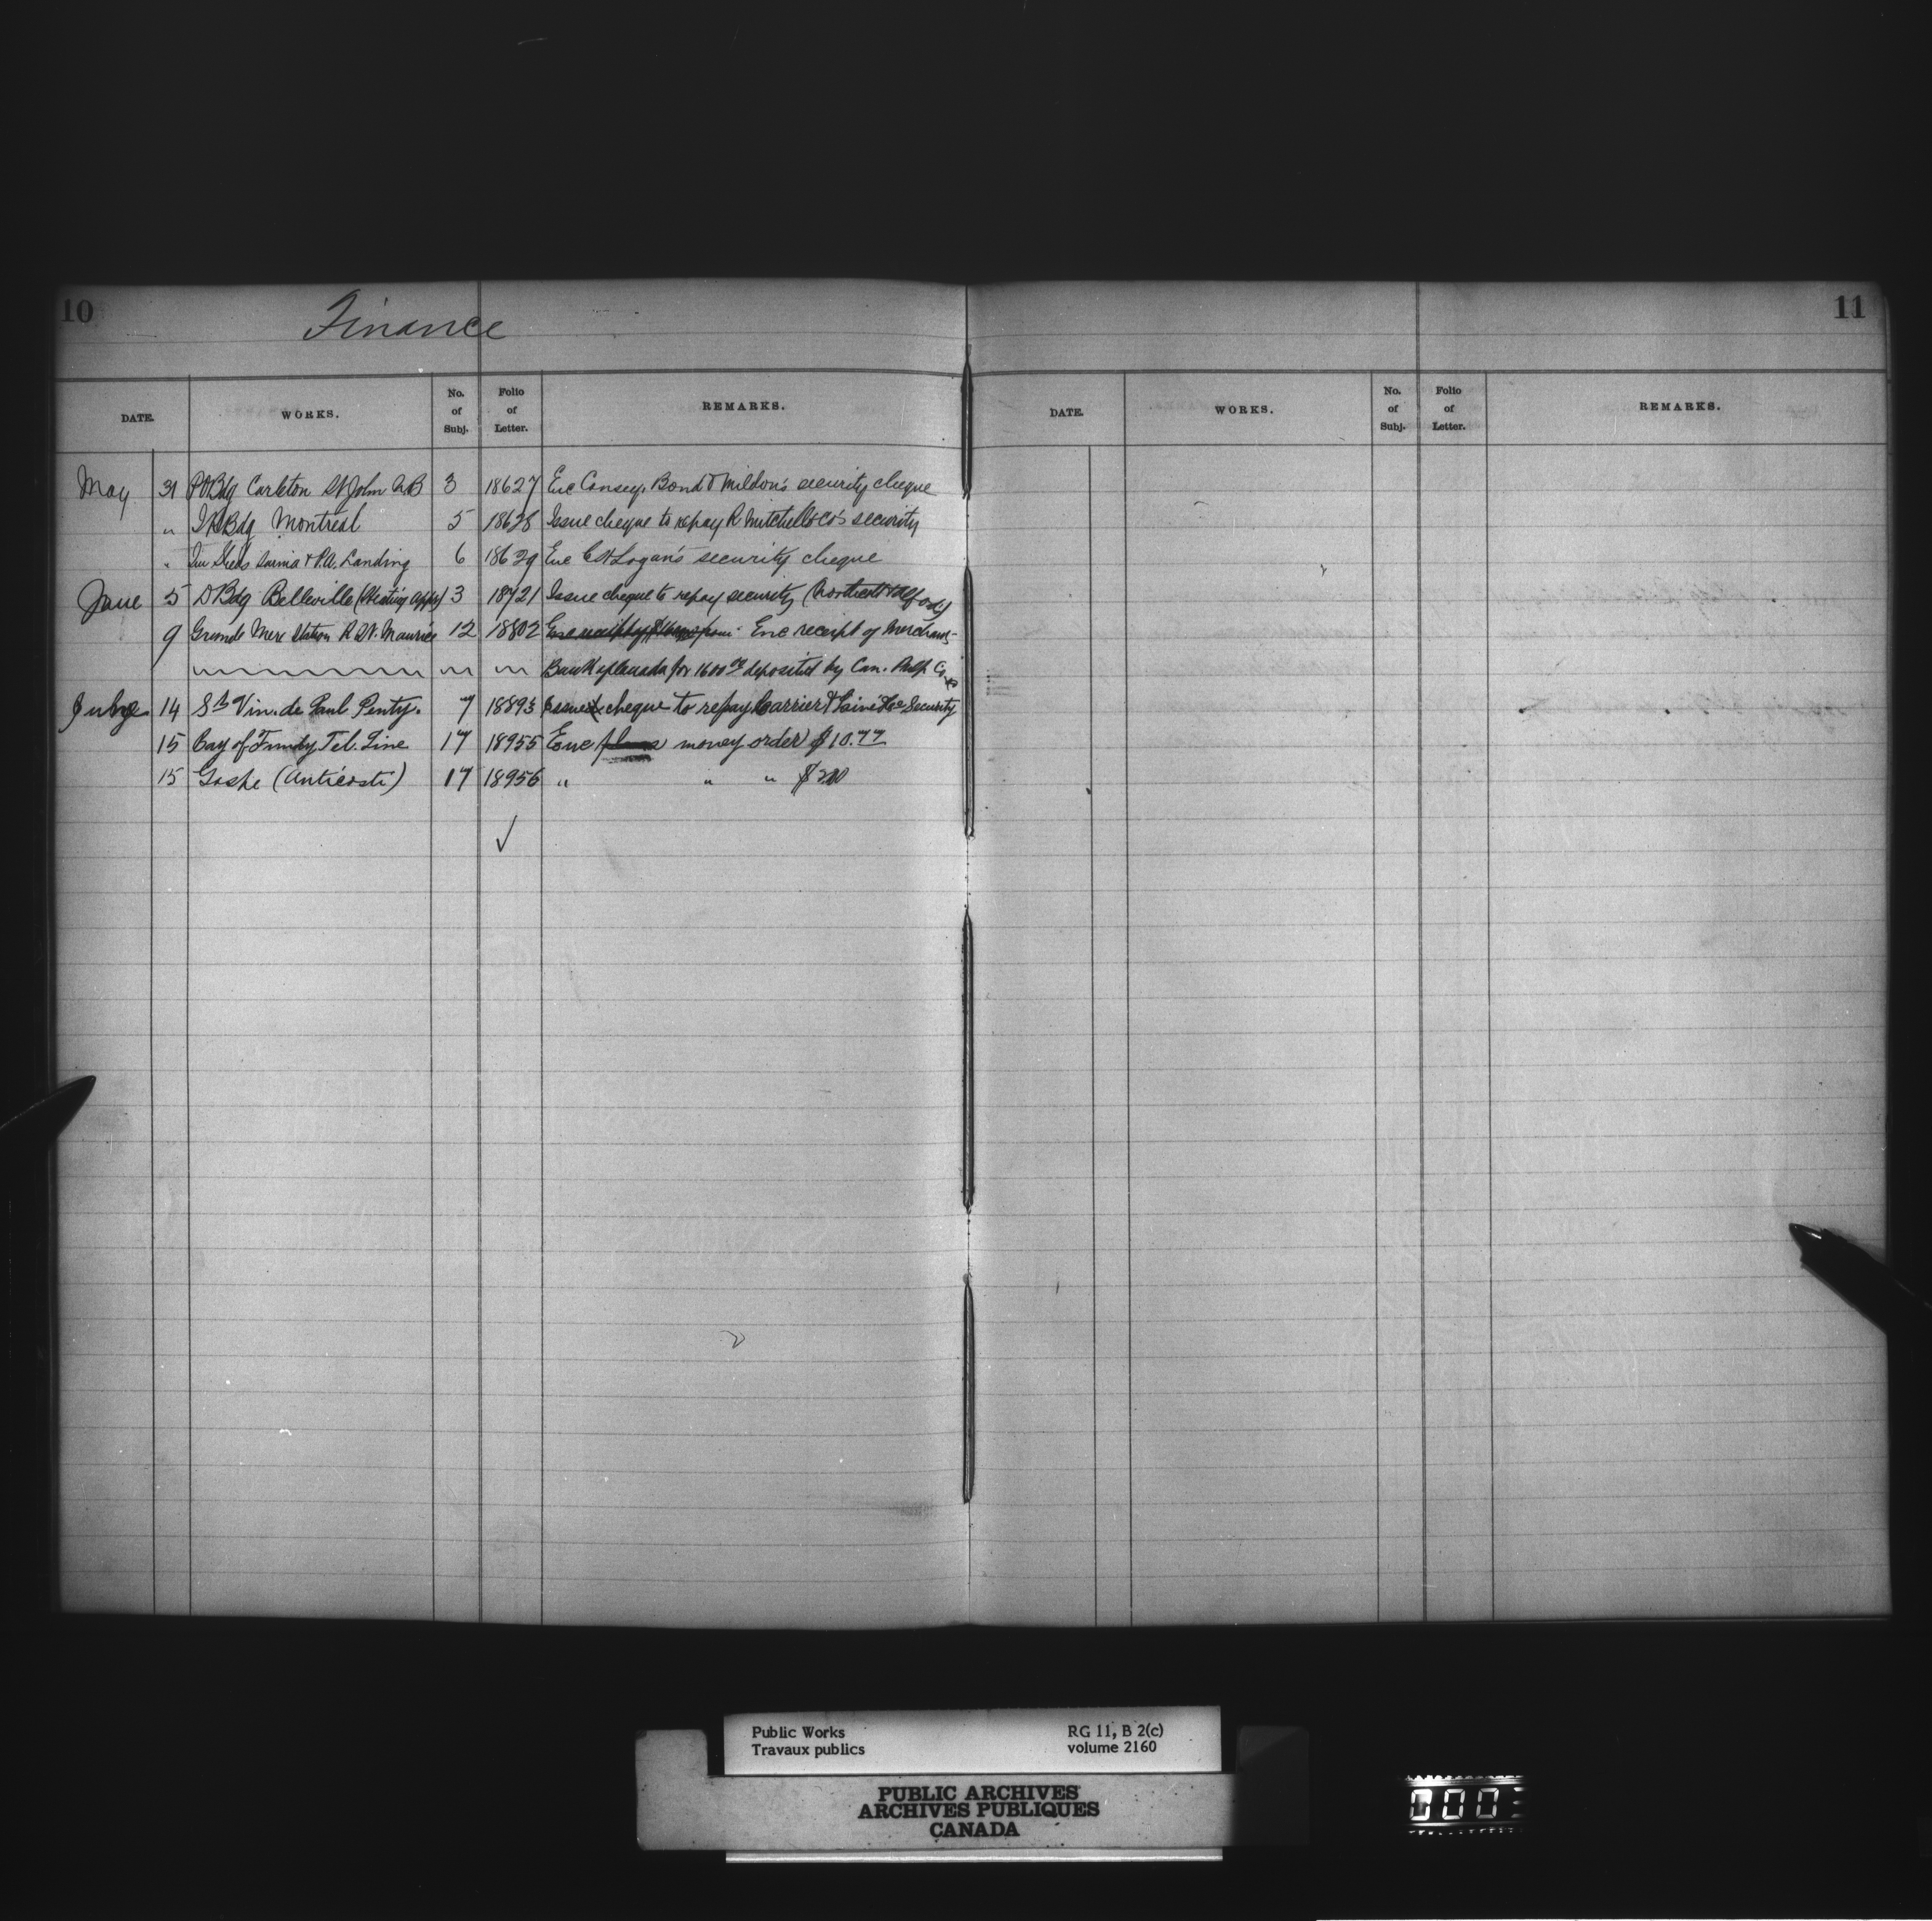 10
Finance
DATE. WORKS. No. of Subj. Folio of Letter. REMARKS.
May 31 P.O. Bdg Carleton St John N.B 3 18627 Enc Causey, Bond & Mildon's security cheque
" Bdg Montreal 5 18628 Issue cheque to repay R Mitchell & Co's security
" Sheds Sarnia & P.A. Landing 6 18629 Enc C H Logan's security cheque
June 5 D Bdg Belleville (Heating app) 3 18721 Issue cheque to repay security
9 Grande Mere Station R St. Maurice 12 18802 Enc receipt of Merchants
Bank of Canada for 1600 00 deposited by Can. Pulp Co
14 St Vin. de Paul Penty. 7 18893 Issue cheque to repay Carrier & Lainé & Co Security
15 Bay of Fundy Tel. Line 17 18955 Enc money order $10.77
15 Gaspe (Anticosti) 17 18956 " " " $200
✓
11
DATE. WORKS. No. of Subj. Folio of Letter. REMARKS.
Public Works RG 11, B 2(c)
Travaux publics volume 2160
PUBLIC ARCHIVES
ARCHIVES PUBLIQUES
CANADA
000